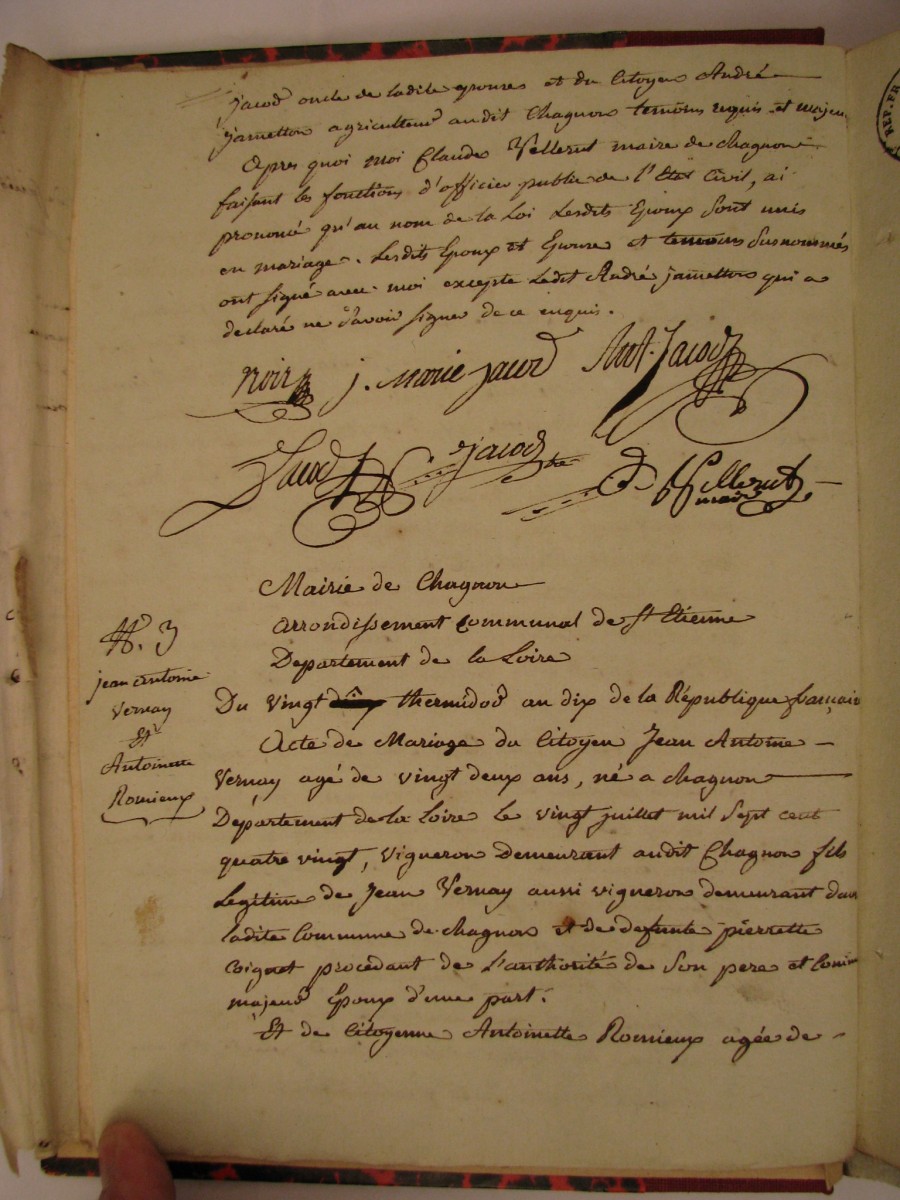 jacod oncle de ladite epouse et du Citoyen André
jametton agriculteur audit Chagnon temoins requis et majeu
Apres quoi moi Claude Vellerut maire de chagnon
faisant les fonctions d'officier public de l'Etat Civil, ai
prononcé qu'au nom de la Loi Lesdits Epoux sont unis
en mariage. Lesdits Epoux et Epouse et temoins susnommés
ont signé avec moi excepte Ledit André jametton qui a
declaré ne savoir signer de ce enquis.
noir j. marie jacod Ant. Jacod
Jacod jacod Vellerut
maire
Mairie de Chagnon
arrondissement communal de St Etienne
Departement de la Loire
N.º 3
jean antoine
Vernay
Et
Antoinette
Romieux
Du vingt thermidor an dix de la République française
Acte de Mariage du Citoyen Jean Antoine
Vernay agé de vingt deux ans, né a chagnon
Département de la Loire le vingt juillet mil sept cent
quatre vingt, vigneron demeurant audit Chagnon fils
Legitime de Jean Vernay aussi vigneron demeurant dans
ladite Commune de chagnon et de defunte pierrette
Coignet procedant de L'authorité de son pere et comme
majeur Epoux d'une part.
Et de Citoyenne Antoinette Romieux agée de